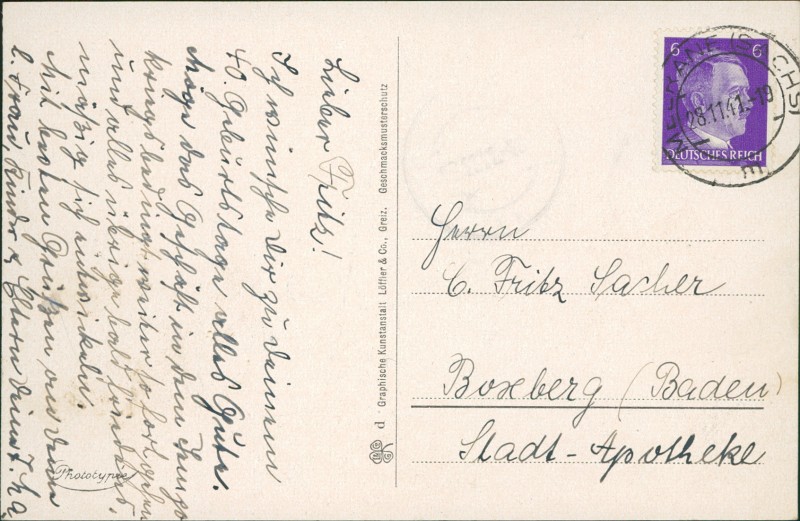 Lieber Fritz!
Ich wünsche Dir zu Deinem
40. Geburtstage alles Gute.
Möge das Geschäft in dem Tempo
kriegsbedingt weiter so fortgehen
und alles übrige bald friedens-
mäßig sich entwickeln.
Mit besten Grüßen an Deine
l. Frau, Kinder & Eltern
Phototypie
d · Graphische Kunstanstalt Löffler & Co., Greiz. Geschmacksmusterschutz
6 6
DEUTSCHES REICH
MEERANE (SACHS)
28.11.41.-19
E
Herrn
C. Fritz Sacher
Boxberg (Baden)
Stadt-Apotheke